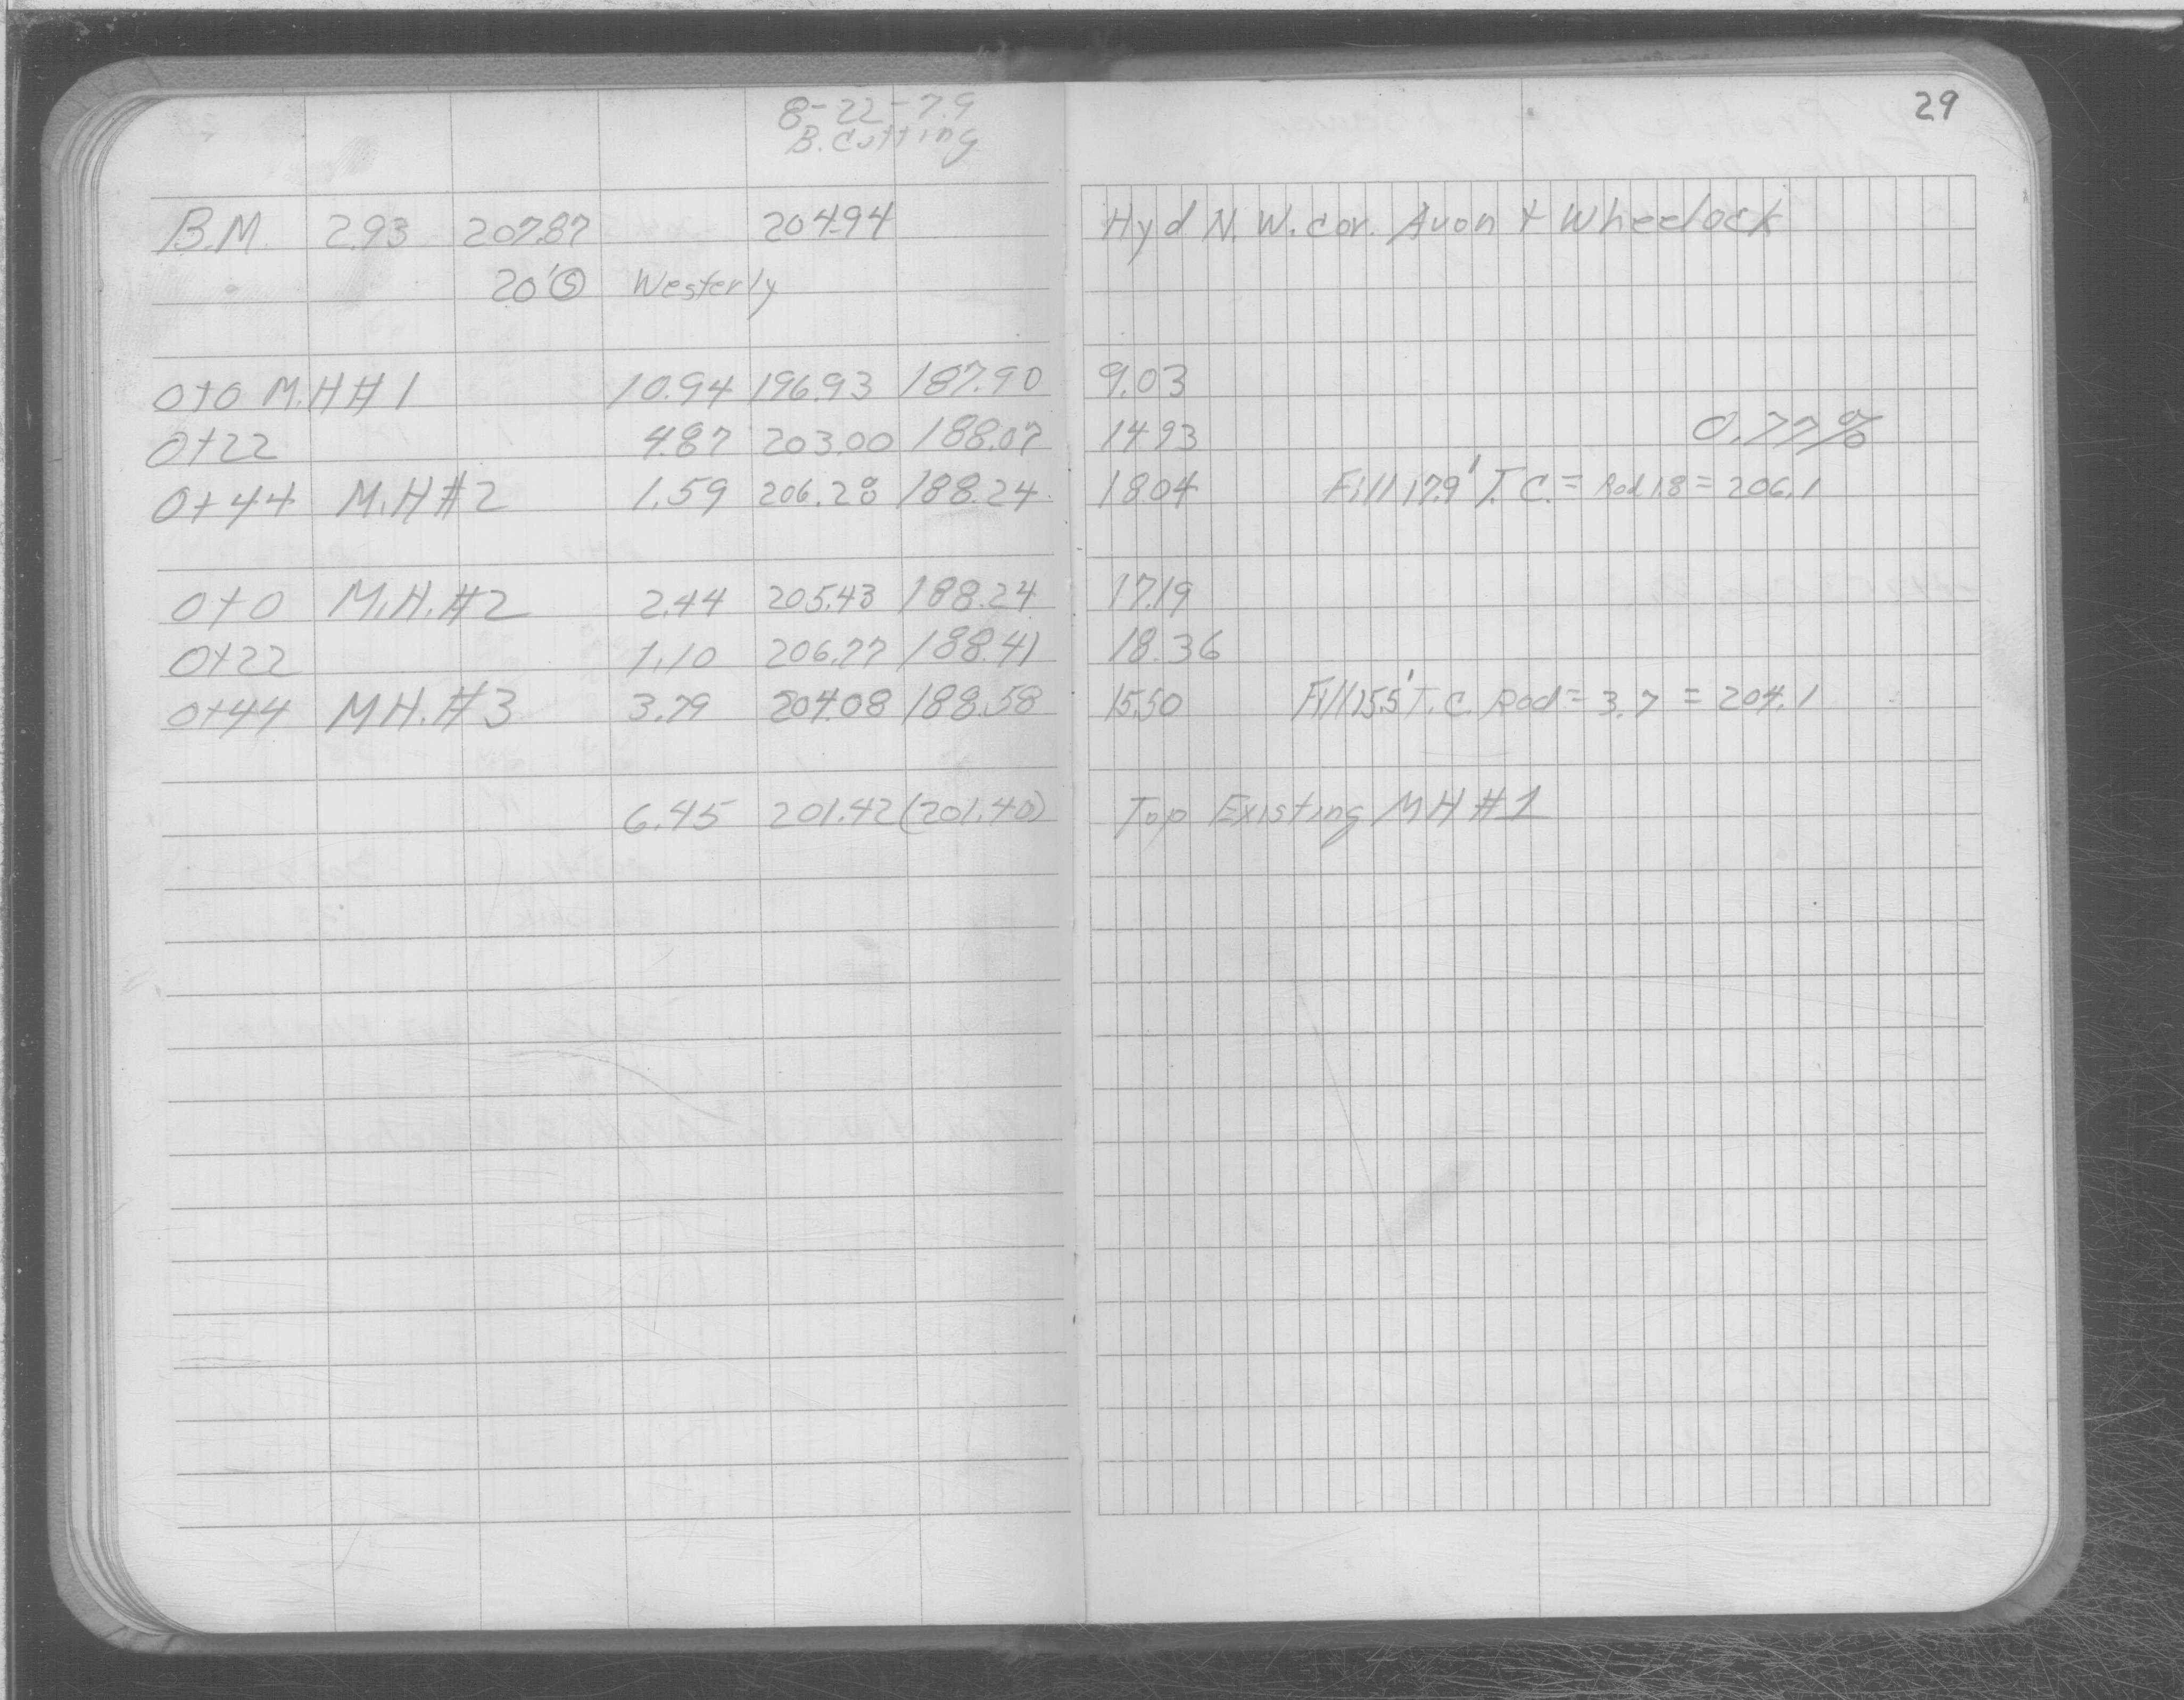 29
8-22-79
B. Cutting
B.M. 2.93 207.87 204.94 Hyd N. W. cor. Avon + Wheelock
20' Ⓢ Westerly
0+0 M.H #1 10.94 196.93 187.90 9.03
0+22 4.87 203.00 188.07 14.93 0.77%
0+44 M.H #2 1.59 206.28 188.24 18.04 Fill 17.9' T.C. = Rod 1.8 = 206.1
0+0 M.H. #2 2.44 205.43 188.24 17.19
0+22 1.10 206.77 188.41 18.36
0+44 MH. #3 3.79 204.08 188.58 15.50 Fill 15.5' T.C. Rod = 3.7 = 204.1
6.45 201.42 (201.40) Top Existing MH #1